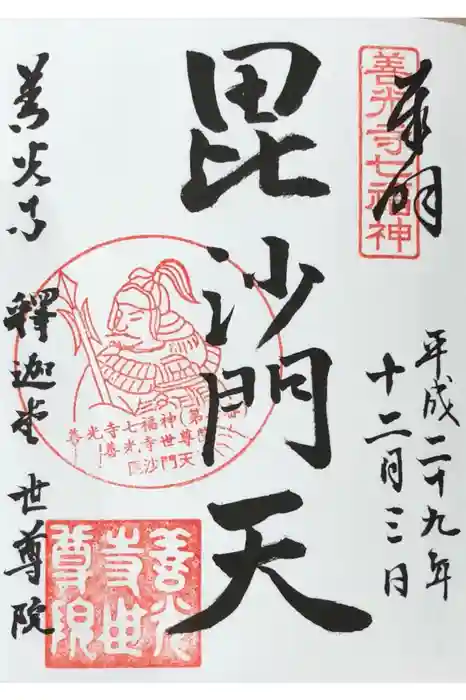 奉拝
善光寺七福神
平成二十九年
十二月三日
毘沙門天
善光寺七福神(第
善光寺世尊院
毘沙門天
善光寺 釋迦堂 世尊院
善光
寺世
尊院